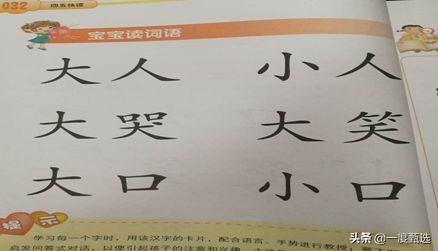 032 四五快读
宝宝读词语
大人 小人
大哭 大笑
大口 小口
提示
学习每一个字时，用该汉字的卡片，配合语言、手势进行教授，
启发问答式对话，以便引起孩子的注意和兴趣。
头条 @一度甄选